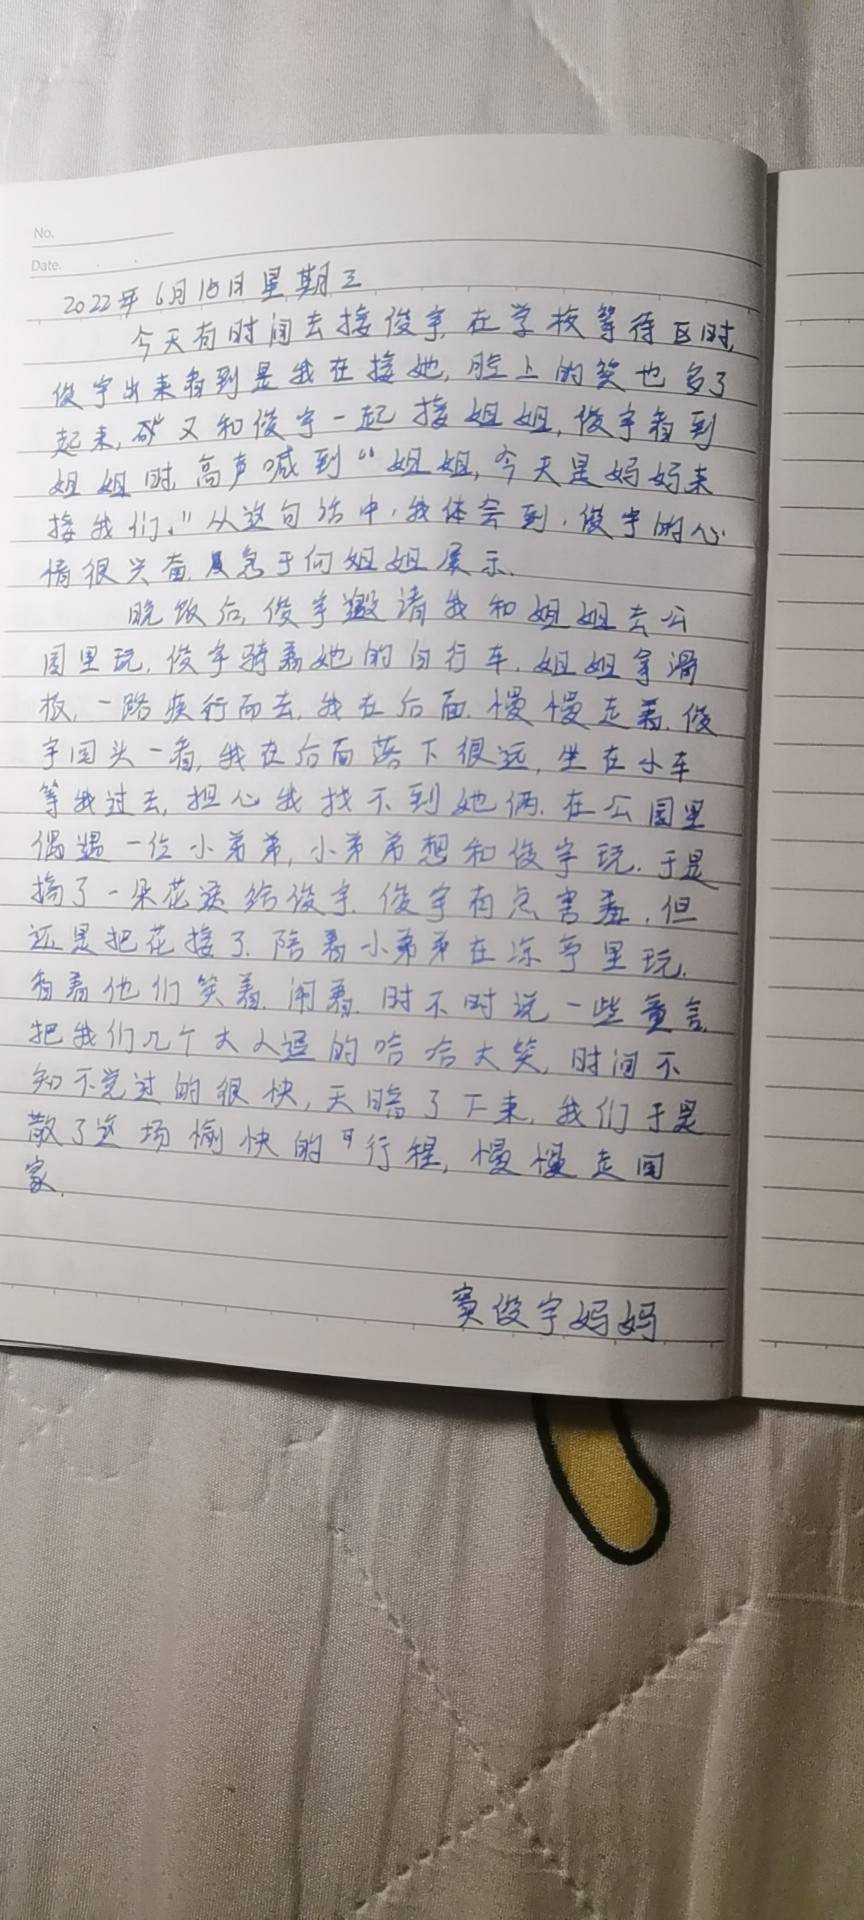 No.
Date.
2022年6月15日星期三
今天有时间去接俊宇,在学校等待区时,
俊宇出来看到是我在接她,脸上的笑也多了
起来,又和俊宇一起接姐姐,俊宇看到
姐姐时,高声喊到“姐姐,今天是妈妈来
接我们。”从这句话中,我体会到,俊宇的心
情很兴奋,急于向姐姐展示。
晚饭后,俊宇邀请我和姐姐去公
园里玩,俊宇骑着她的自行车,姐姐拿滑
板,一路疾行而去,我在后面,慢慢走着,俊
宇回头一看,我在后面落下很远,坐在小车
等我过去,担心我找不到她俩,在公园里
偶遇一位小弟弟,小弟弟想和俊宇玩,于是
摘了一朵花送给俊宇,俊宇有点害羞,但
还是把花接了,陪着小弟弟在凉亭里玩,
看着他们笑着,闹着,时不时说一些童言,
把我们几个大人逗的哈哈大笑,时间不
知不觉过的很快,天暗了下来,我们于是
散了这场愉快的行程,慢慢走回
家。
窦俊宇妈妈